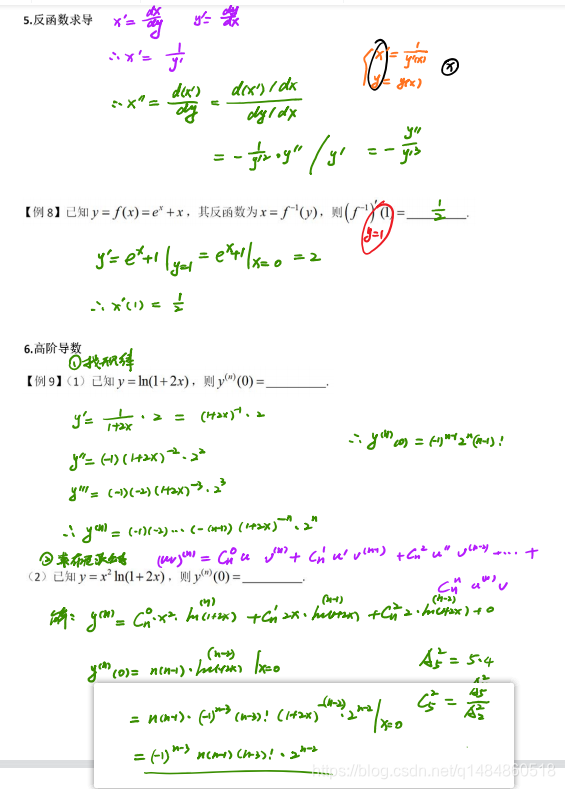 5.反函数求导 x' = dx/dy y' = dy/dx
∴ x' = 1/y' { x' = 1/y'(x) y = y(x) ⓧ
∴ x'' = d(x')/dy = (d(x')/dx)/(dy/dx)
= -1/y'² · y'' / y' = - y''/y'³
【例 8】已知 y = f(x) = eˣ + x，其反函数为 x = f⁻¹(y)，则 (f⁻¹)'(1) = 1/2.
y=1
y' = eˣ+1 |y=1 = eˣ+1 |x=0 = 2
∴ x'(1) = 1/2
6.高阶导数
①找规律
【例 9】（1）已知 y = ln(1+2x)，则 y⁽ⁿ⁾(0) = ________.
y' = 1/(1+2x) · 2 = (1+2x)⁻¹ · 2
∴ y⁽ⁿ⁾(0) = (-1)ⁿ⁻¹ 2ⁿ (n-1)!
y'' = (-1)(1+2x)⁻² · 2²
y''' = (-1)(-2)(1+2x)⁻³ · 2³
∴ y⁽ⁿ⁾ = (-1)(-2)⋯(-(n-1))(1+2x)⁻ⁿ · 2ⁿ
② (uv)⁽ⁿ⁾ = Cn⁰ u v⁽ⁿ⁾ + Cn¹ u' v⁽ⁿ⁻¹⁾ + Cn² u'' v⁽ⁿ⁻²⁾ ⋯ +
Cnⁿ u⁽ⁿ⁾ v
（2）已知 y = x² ln(1+2x)，则 y⁽ⁿ⁾(0) = ________.
解: y⁽ⁿ⁾ = Cn⁰ · x² · ln(1+2x)⁽ⁿ⁾ + Cn¹ 2x · ln(1+2x)⁽ⁿ⁻¹⁾ + Cn² 2 · ln(1+2x)⁽ⁿ⁻²⁾ + 0
y⁽ⁿ⁾(0) = n(n-1) · ln(1+2x)⁽ⁿ⁻²⁾ |x=0
A₅² = 5·4
= n(n-1) · (-1)ⁿ⁻³ (n-3)! (1+2x)⁻⁽ⁿ⁻²⁾ · 2ⁿ⁻² |x=0
C₅² = A₅²/A₂²
= (-1)ⁿ⁻³ n(n-1)(n-3)! · 2ⁿ⁻²
https://blog.csdn.net/q1484860518